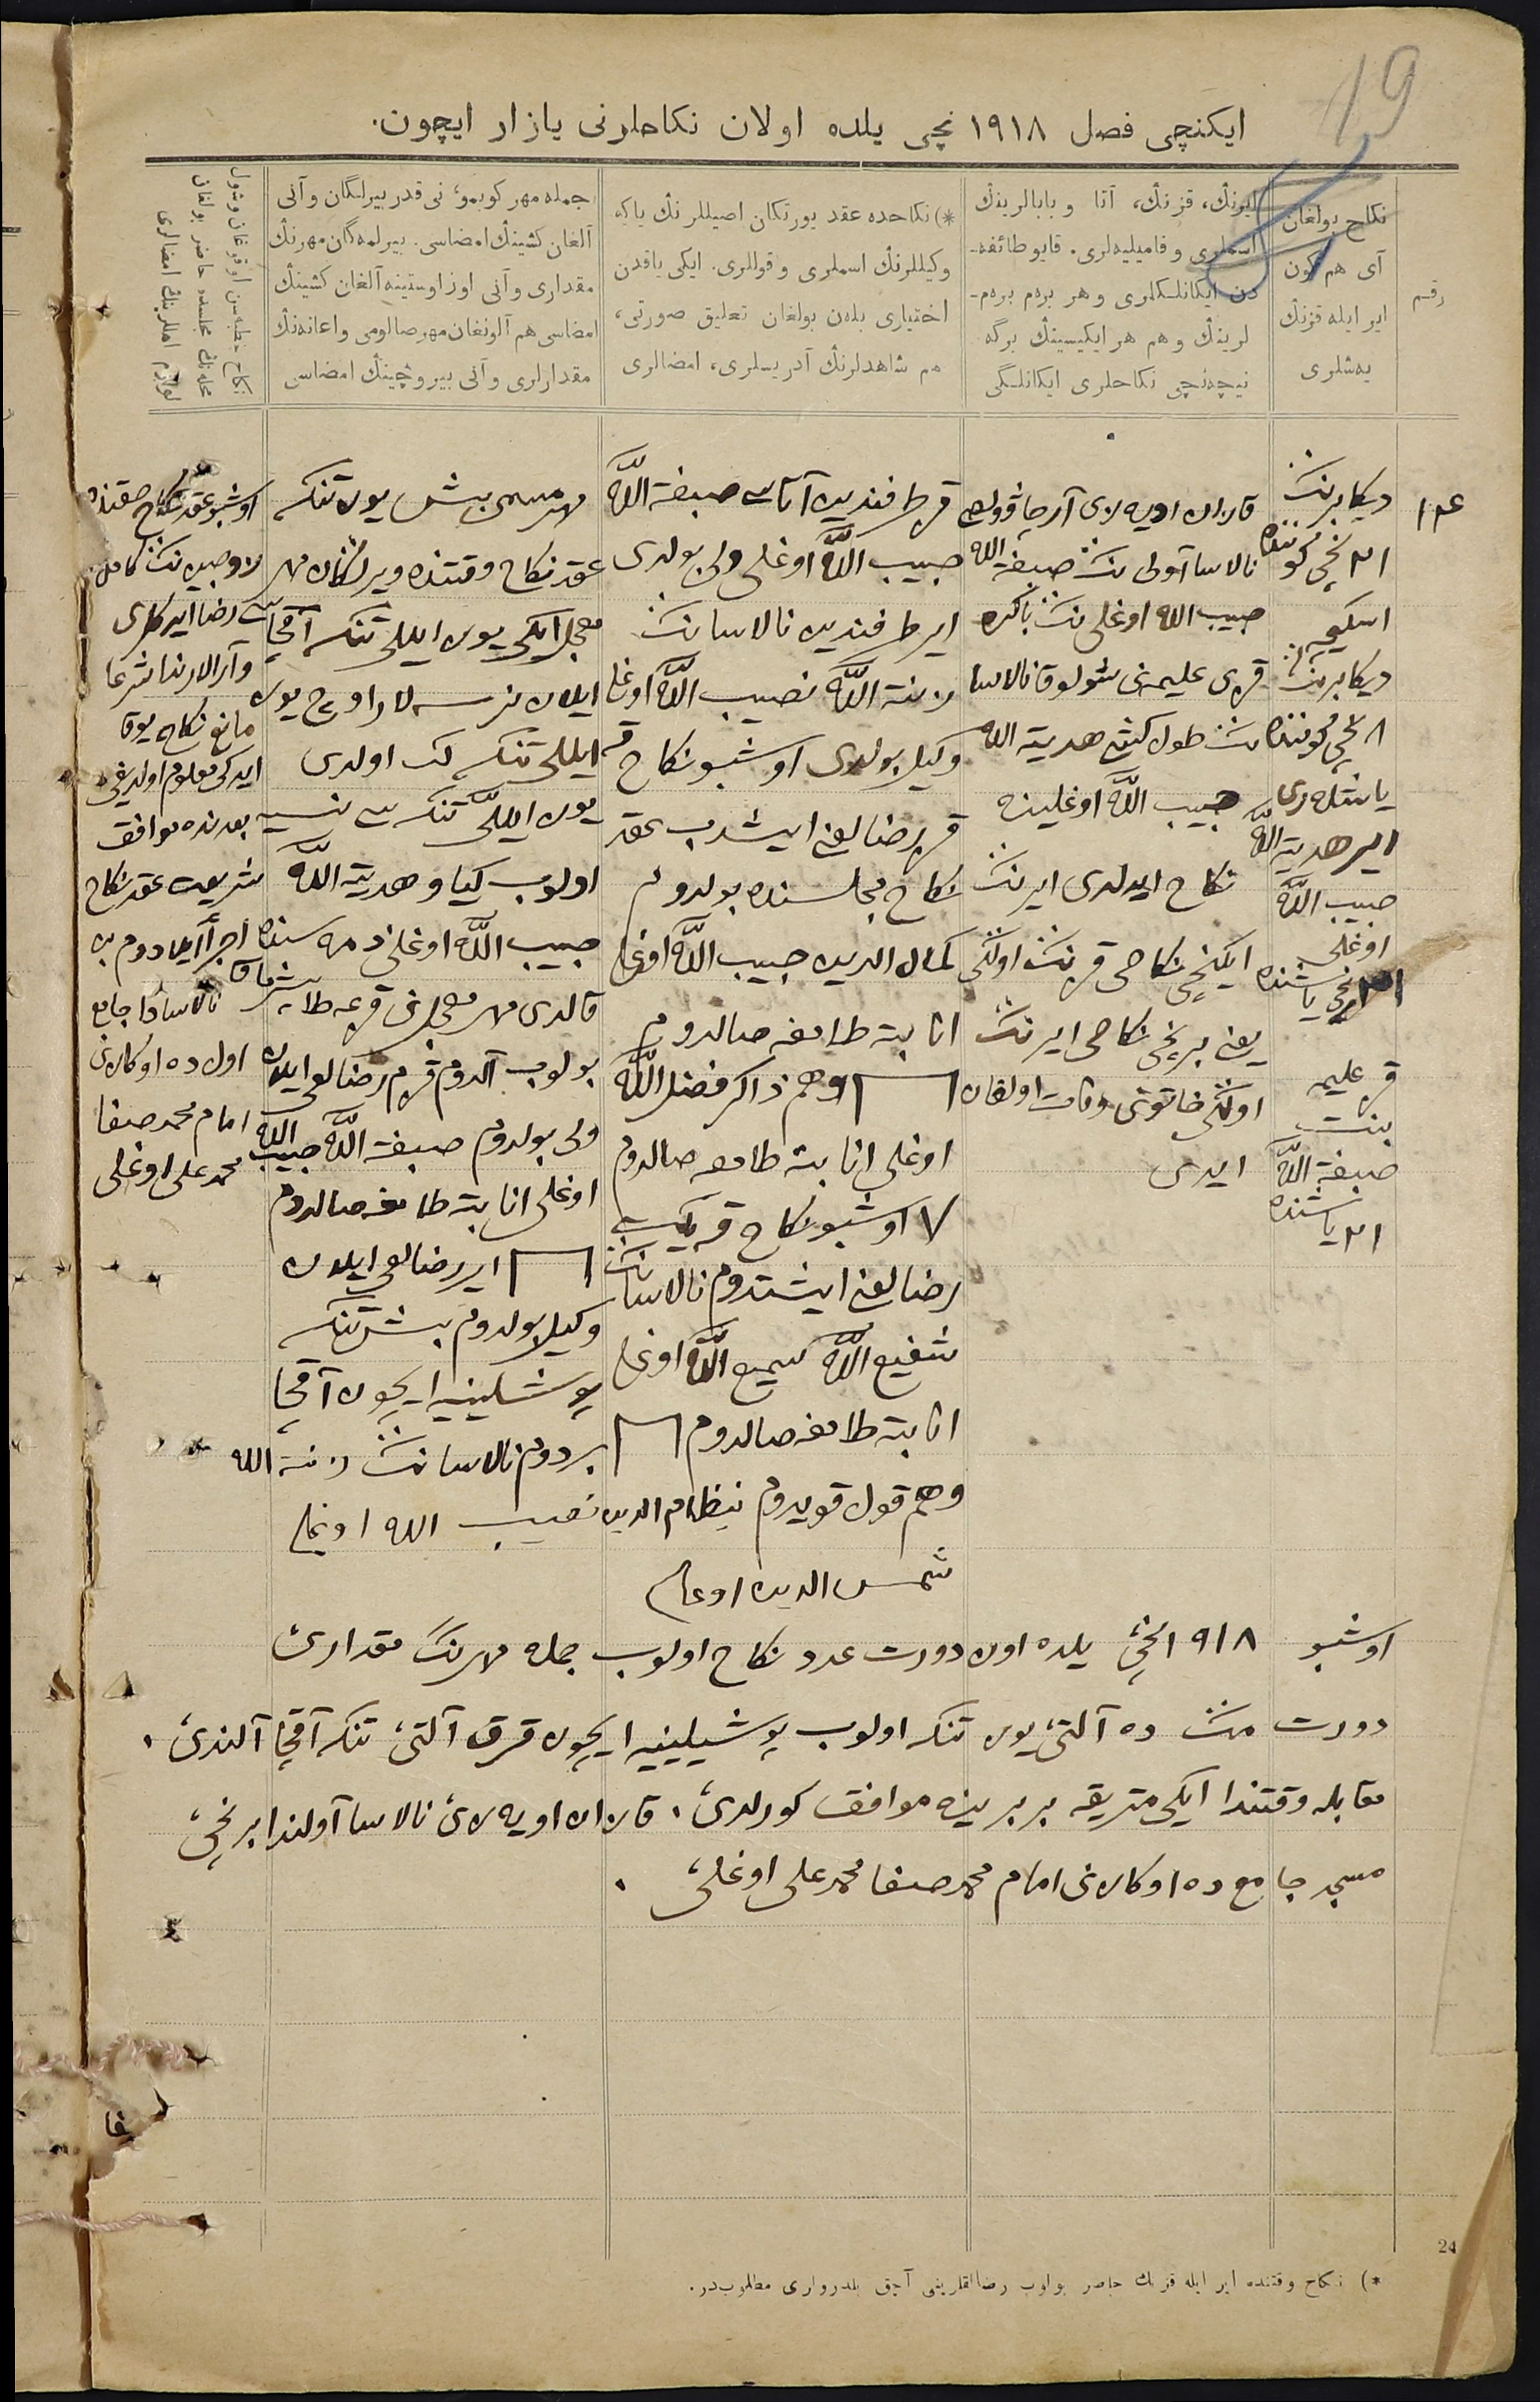 19
ایکنچی فصل ۱۹۱۸ نچی یلده اولان نکاحلرنی یازار ایچون.
رقم
نکاح بولغان
آی هم کون
ایر ایله قزنڭ
یه‌شلری
ایرنڭ، قزنڭ، آتا و بابالرینڭ
اسملری و فامیلیه‌لری. قایو طائفه-
دن ایکانلکلری و هر برم برم-
لرینڭ و هم هر ایکیسینڭ برگه
نیچه‌نچی نکاحلری ایکانلگی
*) نکاحده عقد یورتکان اصیللرنڭ یاکه
وکیللرنڭ اسملری و قوللری. ایکی یاقدن
اختیاری بلەن بولغان تعلیق صورتی،
هم شاهدلرنڭ آدریسلری، امضالری
جمله مهر کوبمو، نی قدر بیرلگان و آنی
آلغان کشینڭ امضاسی. بیرلمه‌گان مهرنڭ
مقداری و آنی اوز اوستینه آلغان کشینڭ
امضاسی هم آلونغان مهر صالومی و اعانه‌نڭ
مقدارلری و آنی بیروچینڭ امضاسی
نکاح خطبه‌سن اوقوغان وشول
محله‌نڭ مجلسنده حاضر بولغان
امضالری
۱۴
دیکابرنڭ
۲۱ نچی کوننده
اسکیچه
دیکابرنڭ
۸ نچی کوننده
یاشتلەری
ایر هدیة الله
حبیب الله
اوغلی
یاشنده
قز علیمه
بنت
صبغة الله
۲۱ یاشنده
قازان اویه‌زی آرچا ڤولصی
نالاسا آولی نڭ صبغة الله
حبیب الله اوغلی نڭ باکره
قزی علیمه‌نی شولوق نالاسا
نڭ طول کشی هدیة الله
حبیب الله اوغلینه
نکاح ایدلدی ایرنڭ
ایکنچی نکاحی قزنڭ اولگی
یعنی برنچی نکاحی ایرنڭ
اولگی خاتونی وفات اولغان
ایدی
قز طرفندین آتاسی صبغة الله
حبیب الله اوغلی ولی بولدی
ایر طرفندین نالاسا نڭ
زینة الله نصیب الله اوغلی
وکیل بولدی اوشبو نکاح
قز رضالغن ایشدب عقد
نکاح مجلسنده بولدوم
کمال الدین حبیب الله اوغلی
اثابتة طامغه صالدوم
وهم ذاکر فضل الله
اوغلی اثابتة طامغه صالدوم
اوشبو نکاح
رضالغن ایشتدوم نالاسا نڭ
شفیع الله سمیع الله اوغلی
اثابتة طامغه صالدوم
وهم قول قویدوم نظام الدین
شمس الدین اوغلی
مهر مسمی بیش یوز تنکه
عقد نکاح وقتنده ویرلگان مهر
معجل ایکی یوز ایللی تنکه آقچا
ایلان نرسه لار اوچ یوز
ایللی تنکه لک اولدی
یوز ایللی تنکه سی نسیه
اولوب کیاو هدیة الله
حبیب الله اوغلی ذمه سنده
قالدی مهر معجلنی قزعه طابشرماقا
بولوب آلدوم قزم رضالغی ایلان
ولی بولدوم صبغة الله حبیب الله
اوغلی اثابتة طامغه صالدوم
ایر رضالغی ایلان
وکیل بولدوم بیش تنکه
پوشلینیه ایچون آقچا
بردوم نالاسا نڭ زینة الله
نصیب الله اوغلی
اوشبو عقد نکاح حقنده
زوجین نڭ کامل
رضا ایرکلری
وآرالارندا شرعا
مانع نکاح یوق
ایدکی معلوم اولدیغی
بعدنده موافق
شریعت عقد نکاح
اجرا ایلادوم
نالاسادا جامع
اول ده اوکازنی
امام محمدصفا
محمدعلی اوغلی
اوشبو ۱۹۱۸ نچی یلده اون دورت عدد نکاح اولوب جمله مهرنڭ مقداری
دورت مڭ ده آلتی یوز تنکه اولوب پوشلینیه ایچون قرق آلتی تنکه آقچا آلندی.
مقابله وقتندا ایکی متریقه بر برینه موافق کورلدی. قازان اویه‌زی نالاسا آولندا برنچی
مسجد جامع ده اوکازنی امام محمدصفا محمدعلی اوغلی.
24
*) نکاح وقتنده ایر ایله قزنڭ حاضر بولوب رضالقلرینی آچق بلدرولری مطلوبدر.